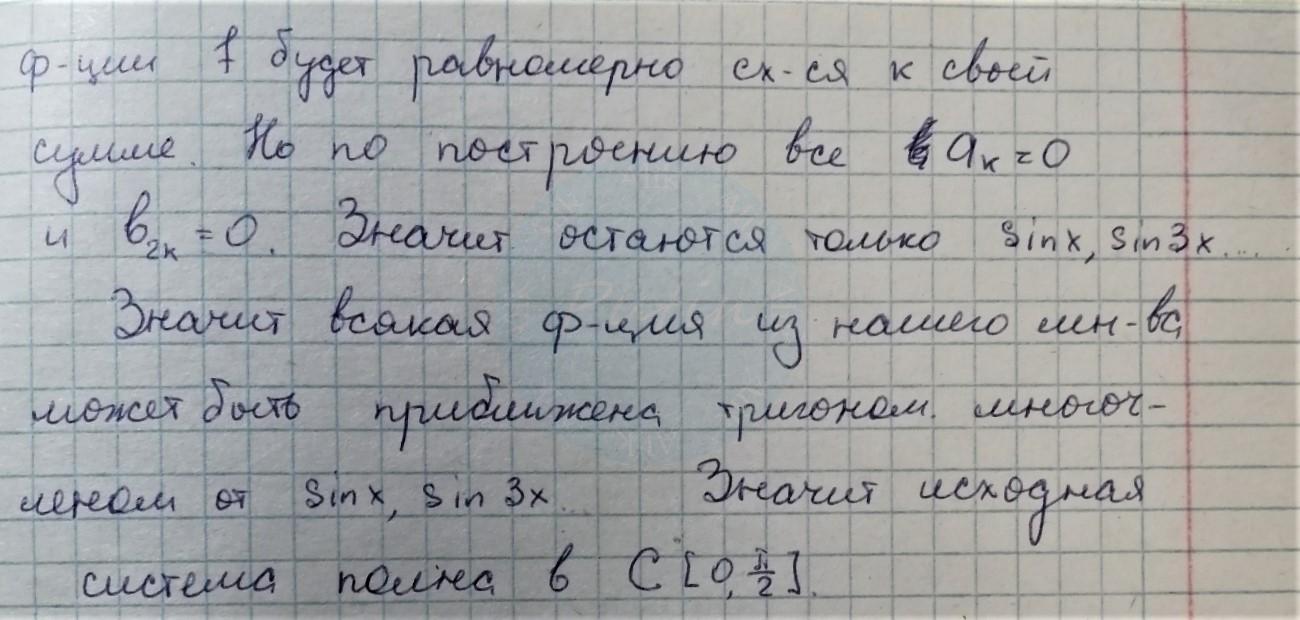 ф-ции f будет равномерно сх-ся к своей
сумме. Но по построению все a_k = 0
и b_{2k} = 0. Значит остаются только sinx, sin3x....
Значит всякая ф-ция из нашего мн-ва
может быть приближена тригоном. многоч-
леном от sinx, sin 3x... Значит исходная
система полна в C [0, π/2].